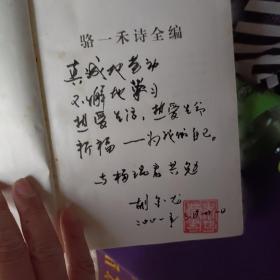 骆一禾诗全编
真诚地劳动
不懈地学习
热爱生活，热爱生命
祈福——为我们自己。
与杨瑞君共勉
胡
二〇〇一年